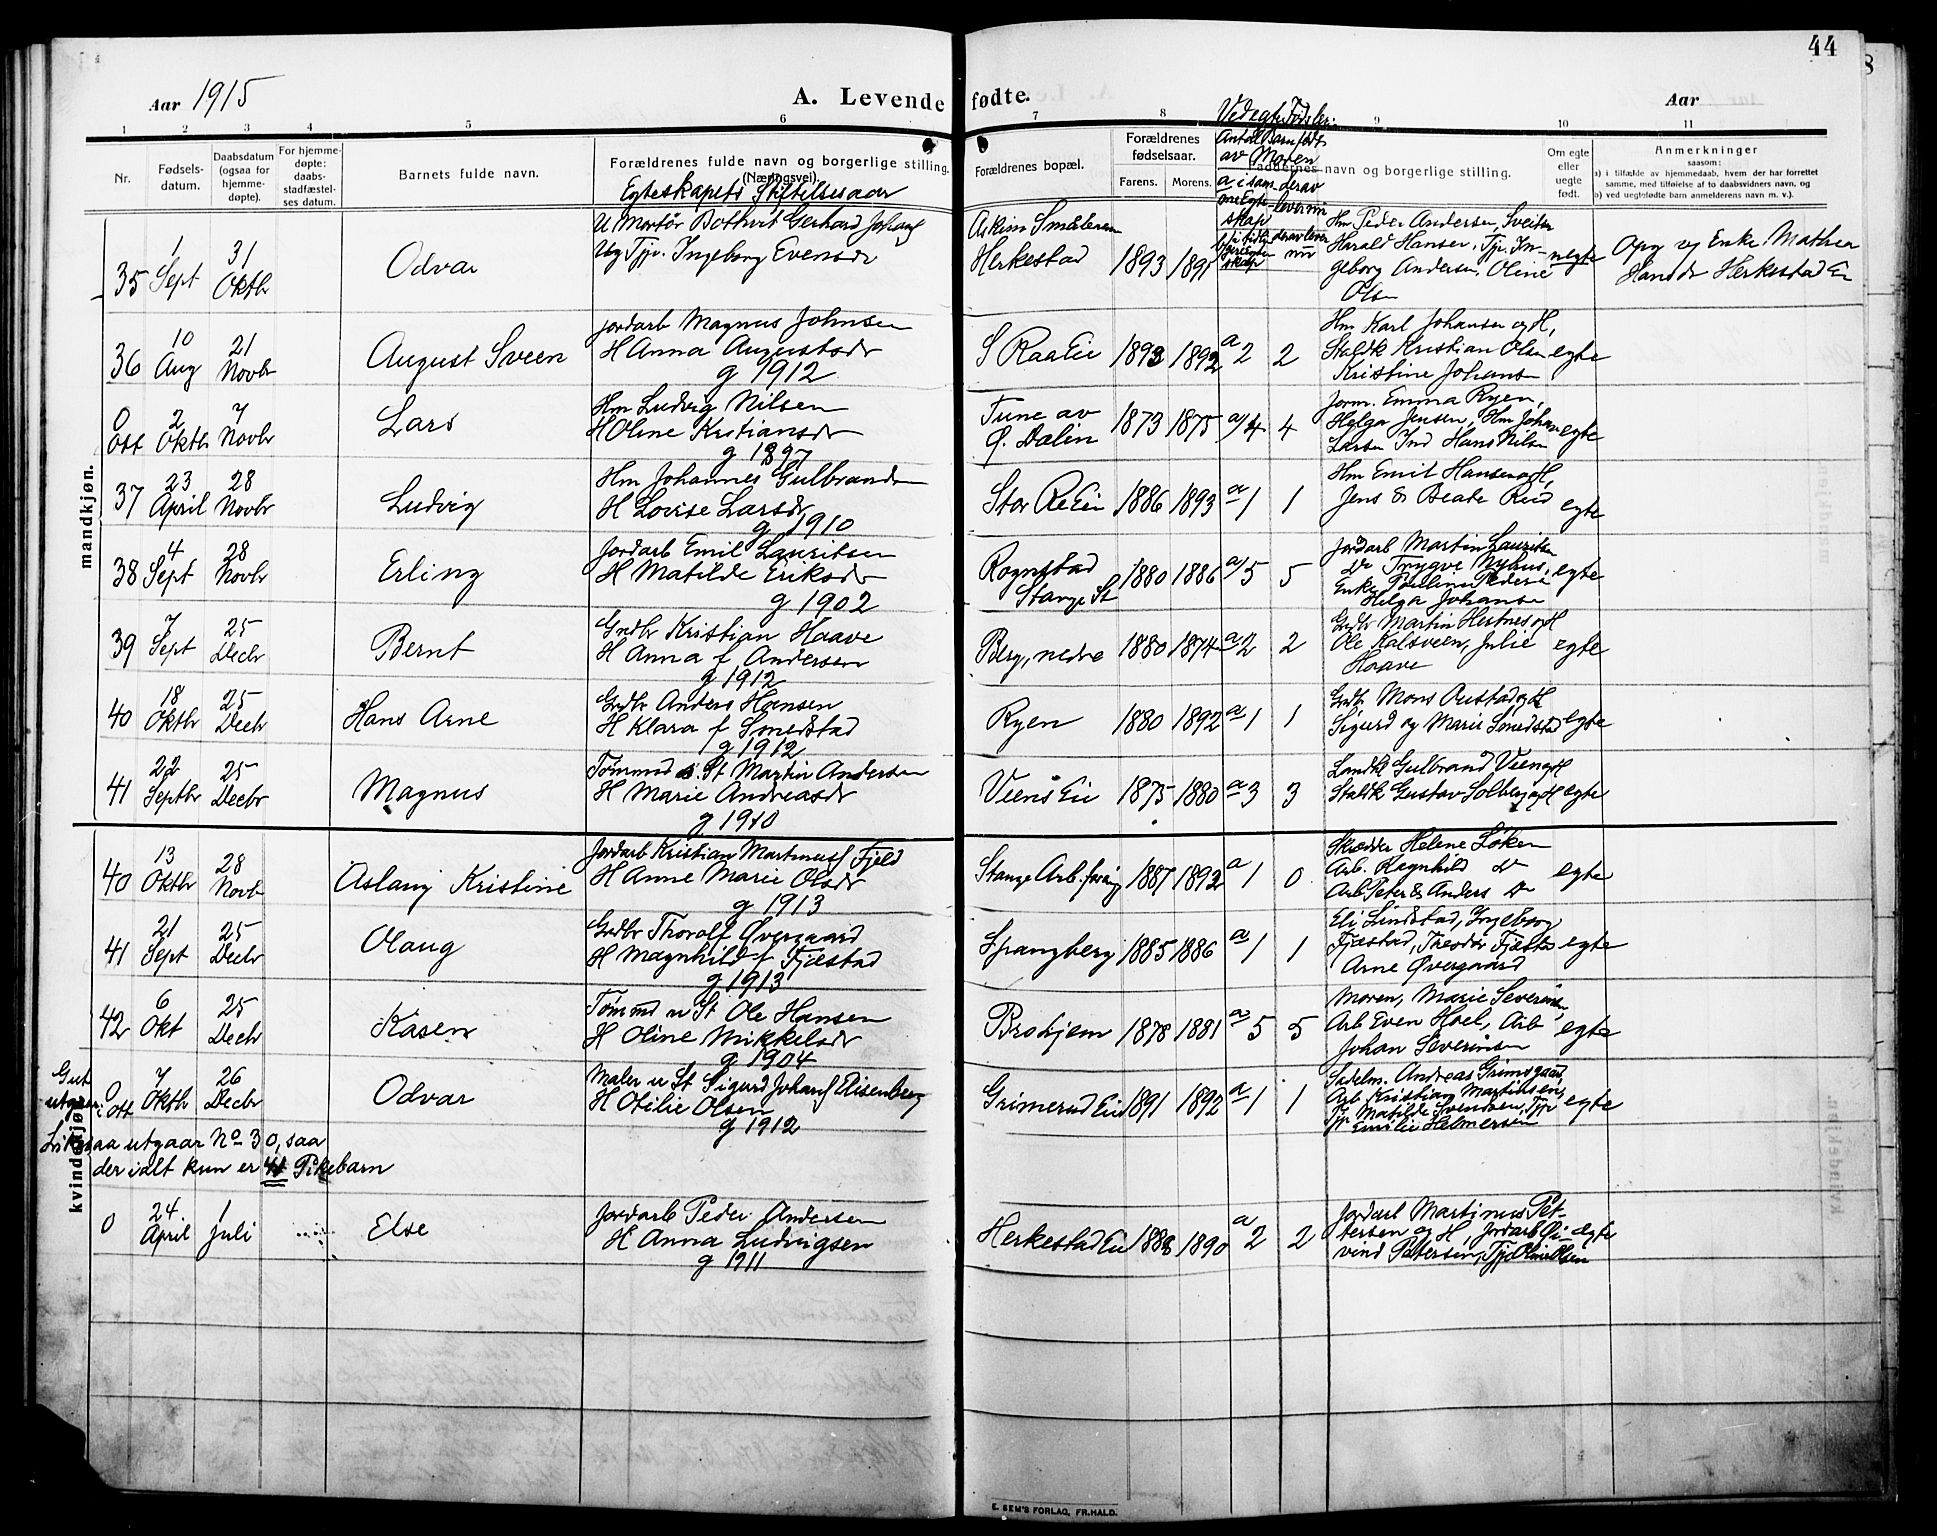 44
Aar 1915
A. Levende fødte.
Aar
Ved egte Fødsler:
1 2 3 4 5 6 7 8 9 10 11
Nr.
Fødsels-
datum.
Daabsdatum
(ogsaa for
hjemme-
døpte).
For hjemme-
døpte:
daabs-
stadfæstel-
ses datum.
Barnets fulde navn.
Forældrenes fulde navn og borgerlige stilling.
(Næringsvei).
Egteskapets Stiftelsesaar
Forældrenes bopæl.
Forældrenes
fødselsaar.
Farens. Morens.
Antal Barn født
av Moren
a i sam-
me Egte-
skap
derav
lever nu
derav lever
nu
Faddernes navn og borgerlige stilling.
Om egte
eller
uegte
født.
Anmerkninger
saasom:
a) i tilfælde av hjemmedaab, hvem der har forrettet
samme, med tilføielse af to daabsvidners navn, og
b) ved uegtefødte barn anmelderens navn m. v.)
mandkjøn.
35 1 Sept 31 Oktbr Odvar
U Mortør Bothvit Gerhard Johans
Ug Tjp. Ingeborg Evensdr
Askim Smaalenene
Herkestad 1893 1891
Hm Peder Andersen, Sveitser
Harald Hansen, Tjp. In-
geborg Andersen, Oline
Olsen
uegte
Opg og Enke Mathea
Hansdr Herkestad Ei
36 10 Aug 21 Novbr August Sveen
Jordarb Magnus Johnsen
H Anna Augustsdr
g 1912
S Raa Eie 1893 1892 a 2 2
Hm Karl Johansen og H,
Staldk Kristian Olsen
Kristine Johansen
egte
0 ott 2 Oktbr 7 Novbr Lars
Hm Ludvig Nilsen
H Oline Kristiansdr
g 1897
Tune av
Ø. Dalin 1873 1875 a/4 4
Jorm. Emma Ryen,
Helga Jensen, Hm Johan
Larsen Ind Hans Nilsen
egte
37 23 April 28 Novbr Ludvig
Hm Johannes Gulbrandsen
H Lovise Larsdr
g 1910
Stor Re Ei 1886 1893 a 1 1
Hm Emil Hansen og H,
Jens & Beate Rud
egte
38 4 Sept 28 Novbr Erling
Jordarb Emil Lauritsen
H Matilde Eriksdr
g 1902
Rognstad
Stange St 1880 1886 a/5 5
Jordarb Martin Lauritsen
Do Trygve Nyhus,
Enke Pauline Pedersen
Helga Johansen
egte
39 7 Sept 25 Decbr Bernt
Grdbr Kristian Haave
H Anna f. Andersen
g 1912
Berg, nedre 1880 1874 a 2 2
Grdbr Martin Hertnes og H
Ole Kalsveen, Julie
Haave
egte
40 18 Oktbr 25 Decbr Hans Arne
Grdbr Anders Hansen
H Klara f Smedstad
g 1912
Ryen 1880 1892 a 1 1
Grdbr Mons Austad og H
Sigurd og Marie Smedstad
egte
41 22 Septbr 25 Decbr Magnus
Tømmmd u. St Martin Andersen
H Marie Andreasdr
g 1910
Viens Eie 1875 1880 a 3 3
Landh Gulbrand Vien og H
Staldk Gustav Solberg og H
egte
kvindekjøn.
40 13 Oktbr 28 Novb Aslaug Kristine
Jordarb Kristian Martinus f Fjeld
H Anne Marie Olsdr
g 1913
Stange Arb. foring 1887 1892 a 1 0
Skrædder Helene Løken
Arb. Ragnhild Do
Arb Peter & Anders Do
egte
41 21 Sept 25 Decbr Olaug
Grdbr Thorolf Øvergaard
H Magnhild f Fjæstad
g 1913
Spangberg 1885 1886 a 1 1
Eli Lindstad, Ingeborg
Fjæstad, Theodor Fjæstad
Arne Øvergaard
egte
42 6 Okt 25 Decbr Kasen
Tømmmd u St Ole Hansen
H Oline Mikkelsdr
g 1904
Brohjem 1878 1881 a 5 5
Moren, Marie Severinsen,
Arb Even Hoel, Arb
Johan Severinsen
egte
Gut
utgaar: 0 ott 7 Oktbr 26 Decbr Odvar
Maler u St Sigurd Johans f Elisenberg
H Otilie Olsen
g 1912
Grimerud Eie 1891 1892 a 1 1
Sadelm. Andreas Grimsgaard,
Arb Kristian Martinsen,
Tjp Matilde Svendsen, Tjp
Emilie Halmersen
egte
Likesaa utgaar No 30, saa
der ialt kun er 41 Pikebarn
0 24. April 1 Juli Else
Jordarb Peder Andersen
H Anna Ludvigsen
g 1911
Herkestad Eie 1888 1890 a 2 2
Jordarb Martinus Pet-
tersen og H, Jordarb Ei-
vind Pettersen, Tjp Oline Olsen
egte
E. SEM'S FORLAG, FR.HALD.